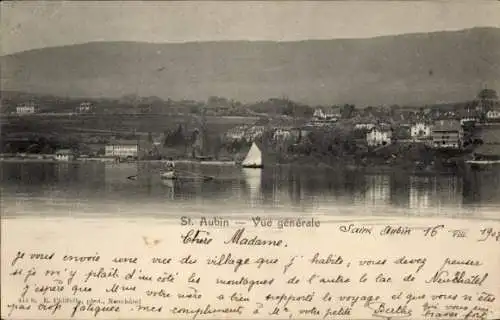 St. Aubin — Vue générale
Saint Aubin 16 VIII 190
Chère Madame.
je vous envoie une vue du village que j'habite, vous devez penser
si je m'y plaît d'un côté les montagnes de l'autre le lac de Neuchâtel
J'espère que Mme votre mère a bien supporté le voyage et que vous n'ête
pas trop fatiguée. mes compliments à Mr votre petite Berthe qui vous em
brasse fort
E. Chiffelle, phot., Neuchâtel